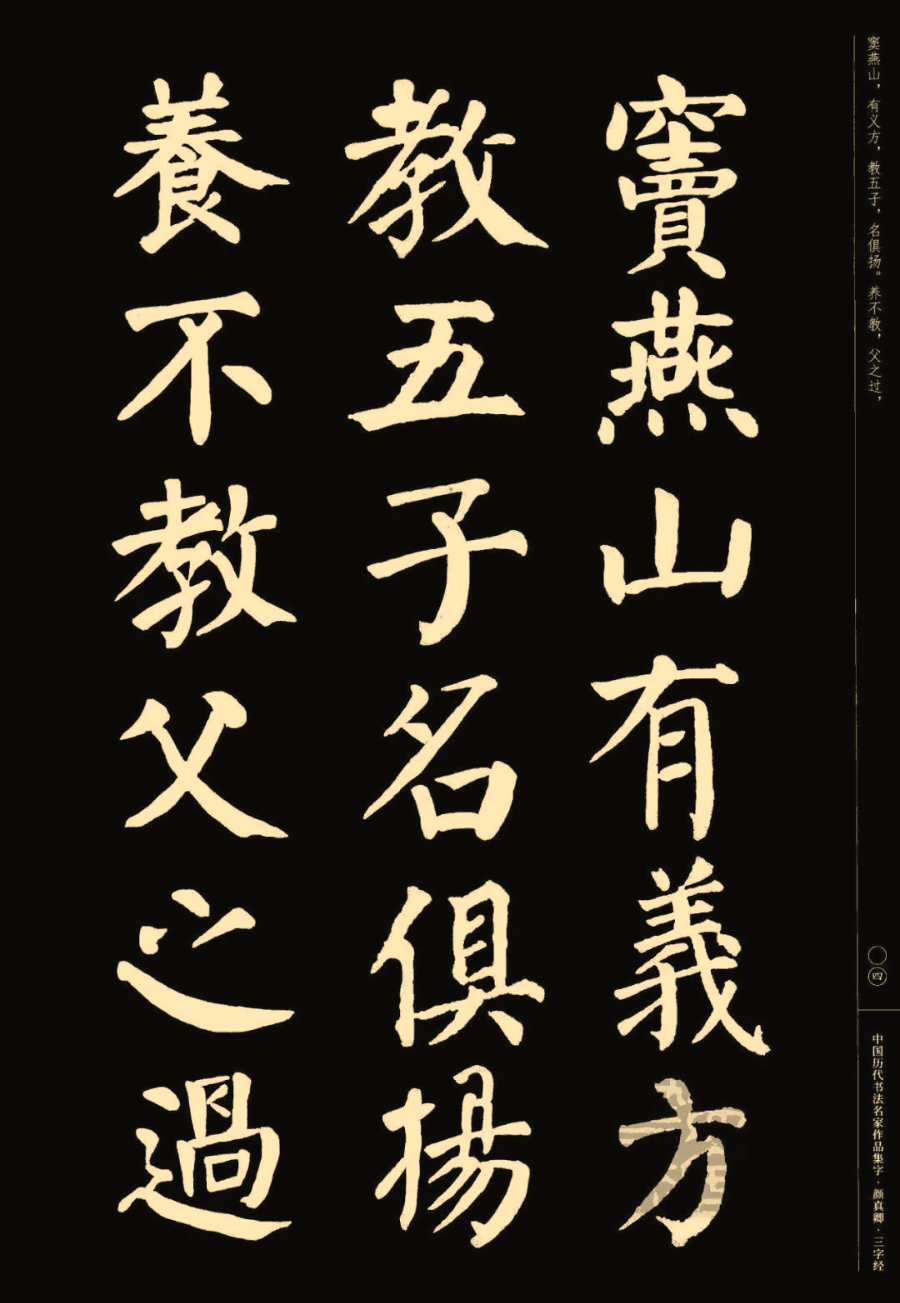 窦燕山，有义方，教五子，名俱扬。养不教，父之过，
竇燕山有義方
教五子名俱揚
養不教父之過
〇四
中国历代书法名家作品集字·颜真卿·三字经